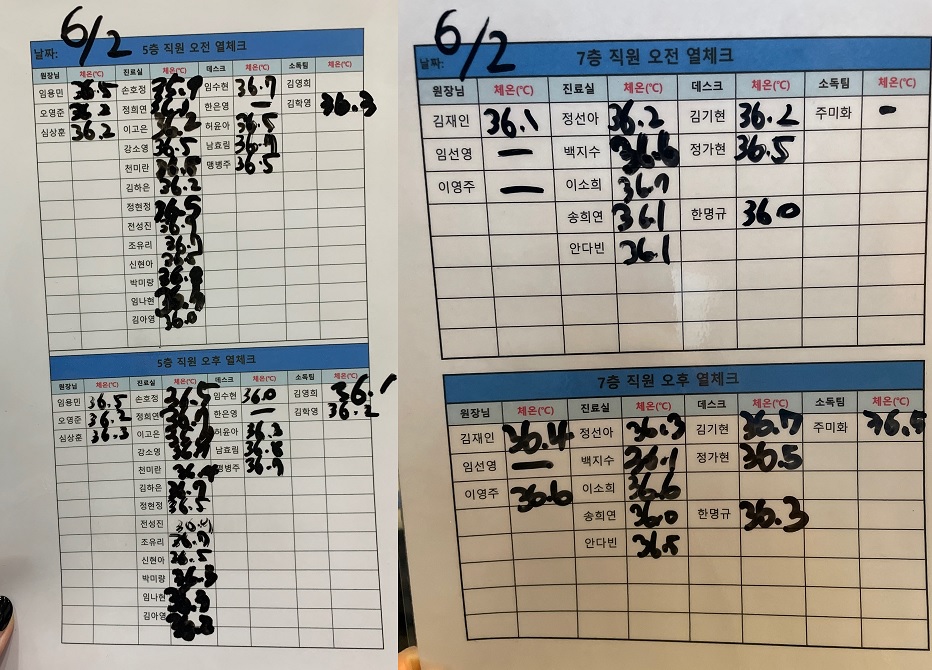 날짜: 6/2 5층 직원 오전 열체크
원장님 체온(℃) 진료실 체온(℃) 데스크 체온(℃) 소독팀 체온(℃)
임용민 36.5 손호정 임수현 36.7 김영희
오영준 36.2 정희연 한은영 — 김학영 36.3
심상훈 36.2 이고은 허윤아 36.5
강소영 36.5 남효림
천미란 맹병주 36.5
김하은 36.2
정현정
전성진
조유리
신현아
박미랑
임나현
김아영 36.0
5층 직원 오후 열체크
원장님 체온(℃) 진료실 체온(℃) 데스크 체온(℃) 소독팀 체온(℃)
임용민 36.5 손호정 36.5 임수현 36.0 김영희
오영준 36.2 정희연 한은영 — 김학영 36.2
심상훈 36.3 이고은 허윤아 36.3
강소영 남효림
천미란 맹병주 36.7
김하은
정현정 36.5
전성진
조유리
신현아 36.5
박미랑 36.3
임나현
김아영
날짜: 6/2 7층 직원 오전 열체크
원장님 체온(℃) 진료실 체온(℃) 데스크 체온(℃) 소독팀 체온(℃)
김재인 36.1 정선아 36.2 김기현 36.2 주미화 -
임선영 — 백지수 36.6 정가현 36.5
이영주 — 이소희 36.7
송희연 36.1 한명규 36.0
안다빈 36.1
7층 직원 오후 열체크
원장님 체온(℃) 진료실 체온(℃) 데스크 체온(℃) 소독팀 체온(℃)
김재인 36.4 정선아 36.3 김기현 36.7 주미화 36.5
임선영 — 백지수 36.1 정가현 36.5
이영주 36.6 이소희 36.6
송희연 36.0 한명규 36.3
안다빈 36.5